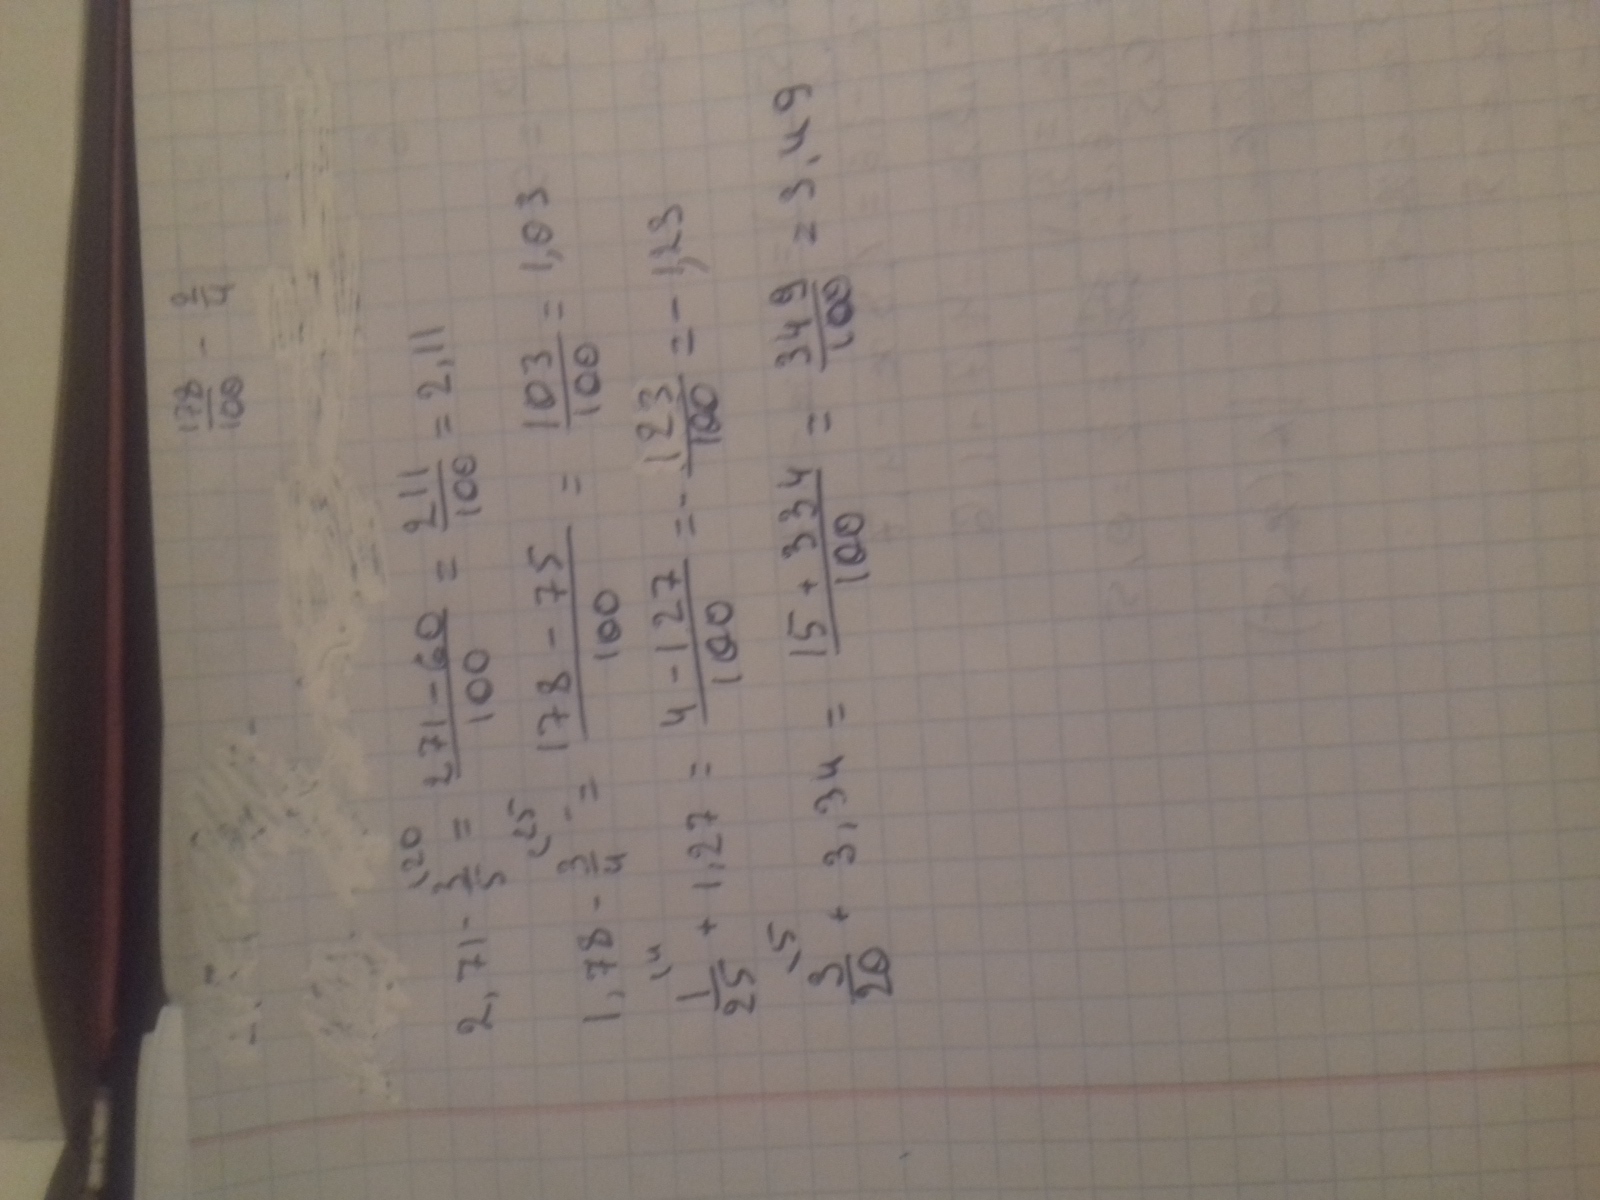 178/100 - 3/4
2,71 - 3/5 (20 = 271-60/100 = 211/100 = 2,11
1,78 - 3/4 (25 - = 178 - 75/100 = 103/100 = 1,03
1/25 (4 + 1,27 = 4 - 127/100 = - 123/100 = - 1,23
3/20 (5 + 3,34 = 15 + 334/100 = 349/100 = 3,49